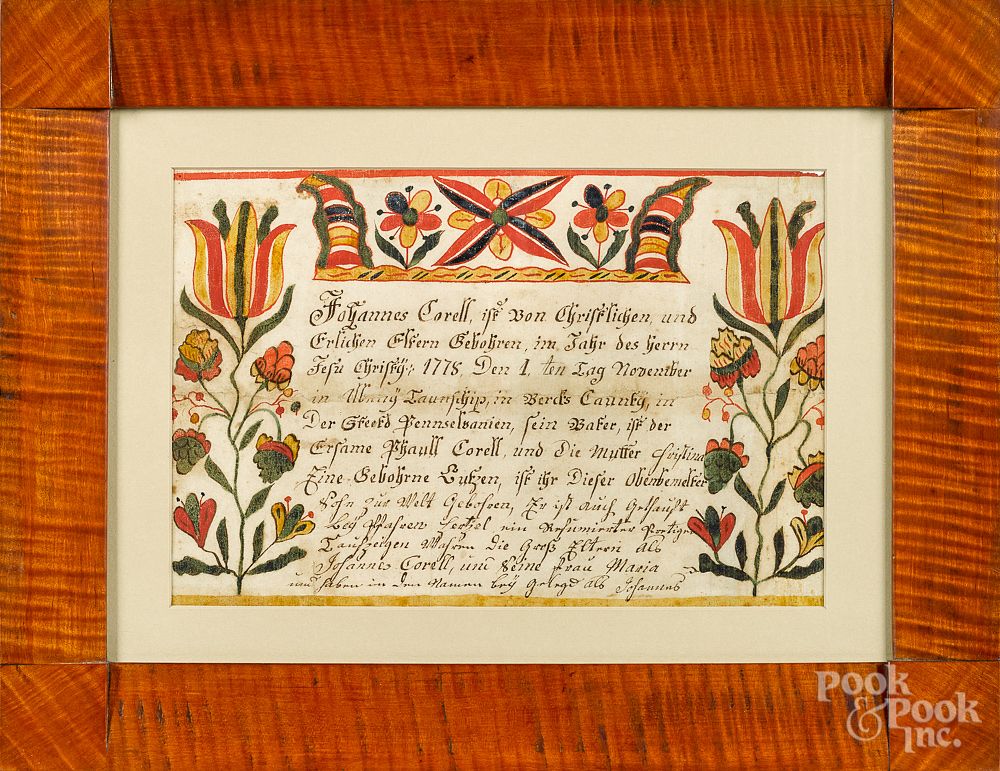 Johannes Corell, ist Von Christlichen, und
Erlichen Eltern Gebohren, im Jahr des Herrn
Jesu Christy: 1778. Den 1. ten Tag November
in Albany Taunschip, in Bercks Caunty, in
Der Steetd Pennselvanien, sein Vater, ist der
Ersame Phaull Corell, und Die Mutter Christina
Eine Gebohrne Lutzen, ist ihr Dieser Obenbemelter
Sohn zur Welt Gebohren, Er ist auch Getauft
bey Pfahren ein Refumierter Pretiger
Taufzeigen Wahren die Groß Eltern als
Johannes Corell, und Seine frau Maria
und haben im den Namen bey Gelegd als Johannes
Pook
& Pook
Inc.